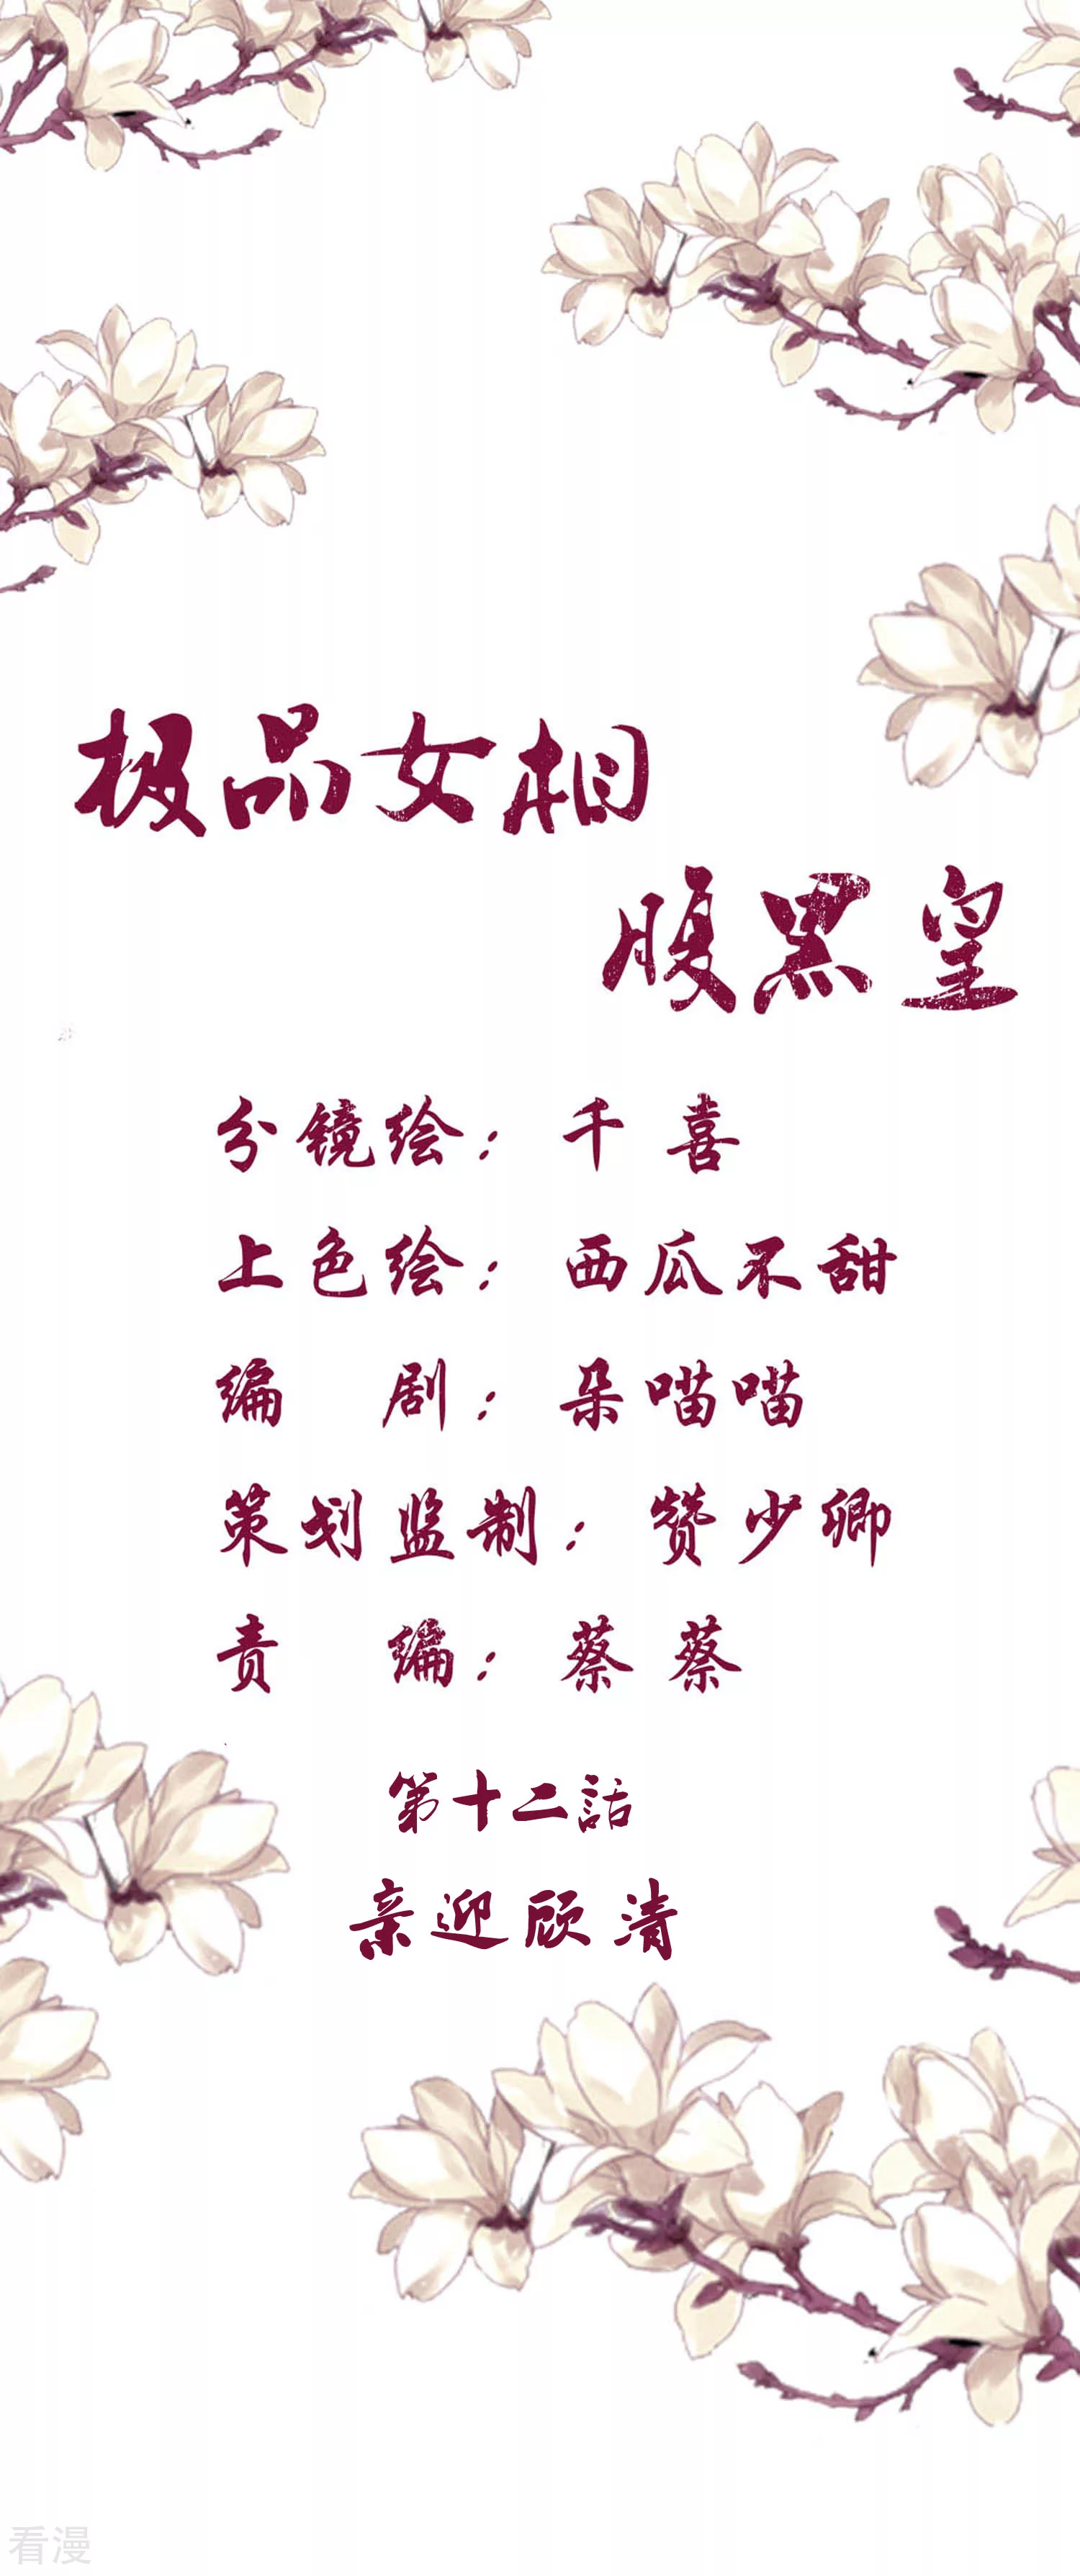 极品女相
腹黑皇
分镜绘：千喜
上色绘：西瓜不甜
编 剧：朵喵喵
策划监制：赞少卿
责 编：蔡蔡
第十二話
亲迎顾清
看漫